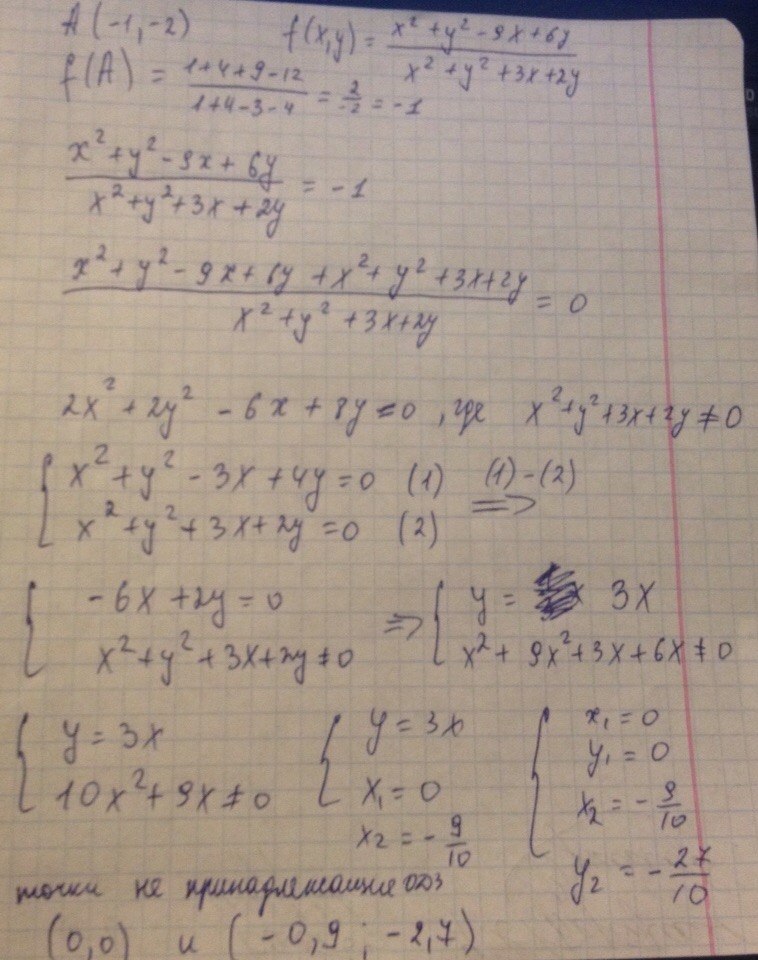 A (-1,-2) f(x,y) = (x² + y² - 9x + 6y)/(x² + y² + 3x + 2y)
f(A) = (1+4+9-12)/(1+4-3-4) = 2/-2 = -1
(x² + y² - 9x + 6y)/(x² + y² + 3x + 2y) = -1
(x² + y² - 9x + 6y + x² + y² + 3x + 2y)/(x² + y² + 3x + 2y) = 0
2x² + 2y² - 6x + 8y = 0, где x² + y² + 3x + 2y ≠ 0
{ x² + y² - 3x + 4y = 0 (1) (1)-(2)
x² + y² + 3x + 2y = 0 (2) =>
{ -6x + 2y = 0 => { y = 3x
x² + y² + 3x + 2y ≠ 0 x² + 9x² + 3x + 6x ≠ 0
{ y = 3x { y = 3x { x₁ = 0
y₁ = 0
10x² + 9x ≠ 0 x₁ = 0 x₂ = -9/10
x₂ = -9/10 y₂ = -27/10
точки не принадлежащие ОДЗ
(0,0) и (-0,9 ; -2,7)